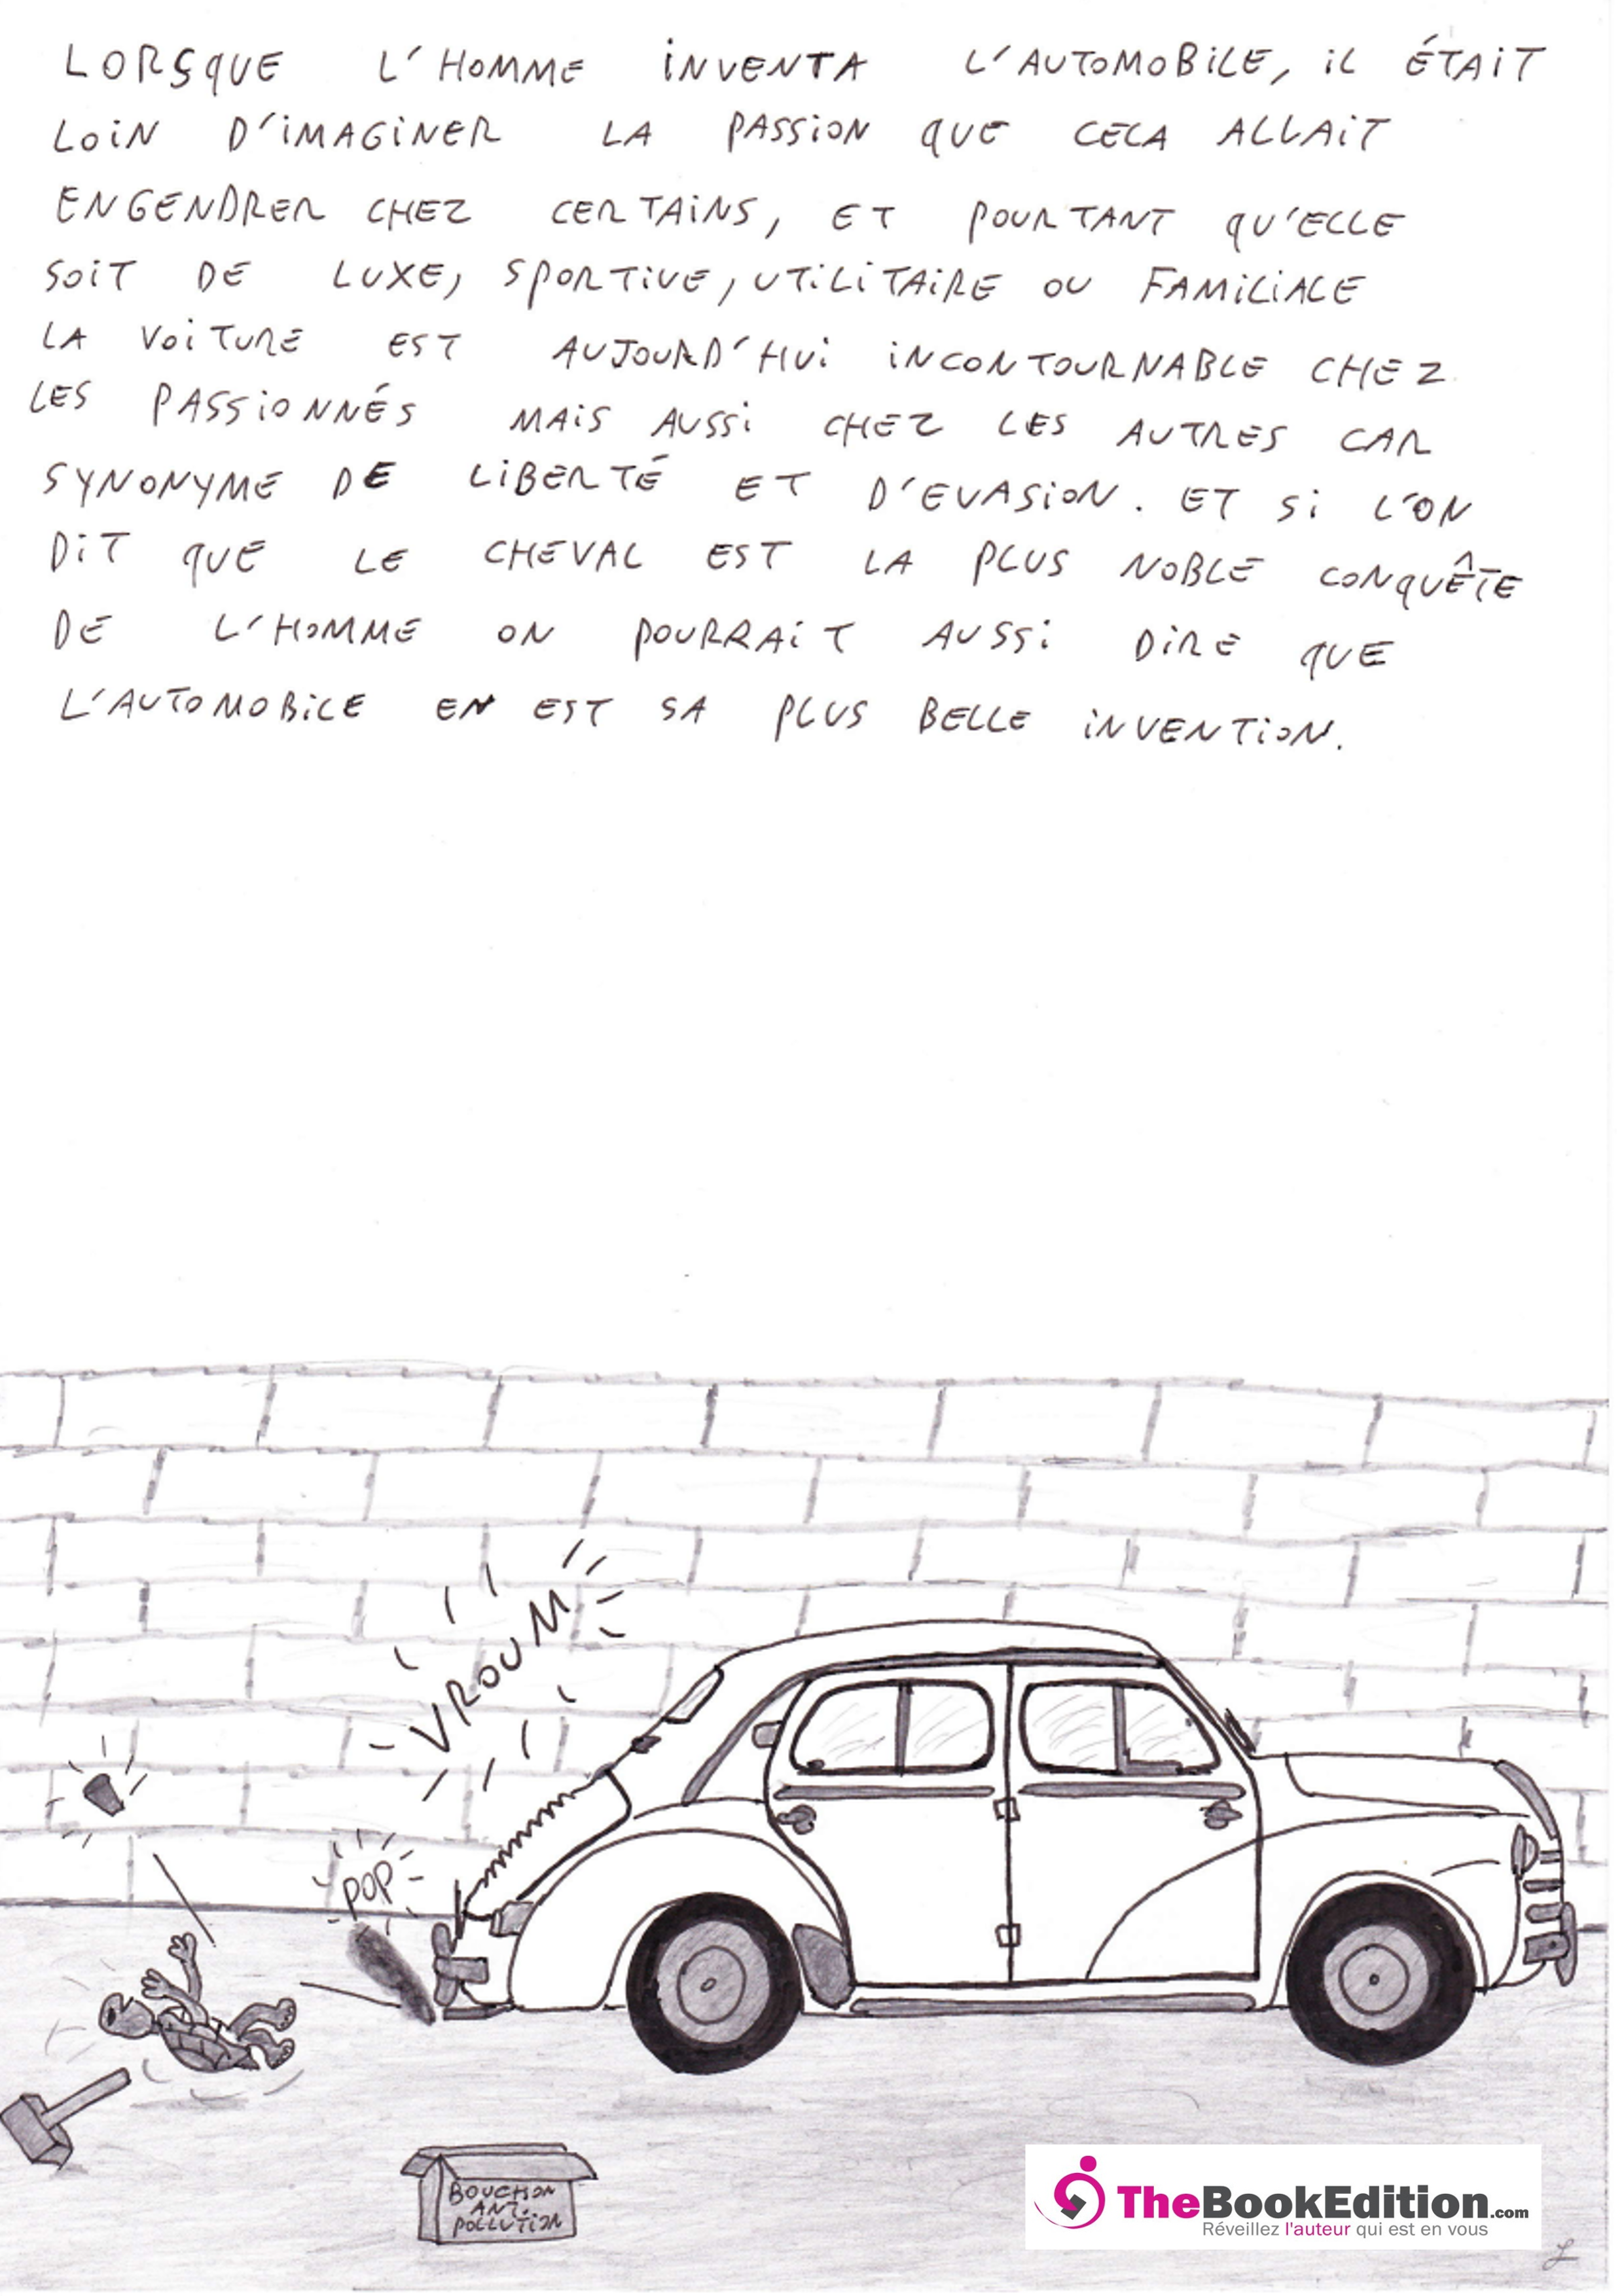 LORSQUE L'HOMME INVENTA L'AUTOMOBILE, IL ÉTAIT
LOIN D'IMAGINER LA PASSION QUE CELA ALLAIT
ENGENDRER CHEZ CERTAINS, ET POURTANT QU'ELLE
SOIT DE LUXE, SPORTIVE, UTILITAIRE OU FAMILIALE
LA VOITURE EST AUJOURD'HUI INCONTOURNABLE CHEZ
LES PASSIONNÉS MAIS AUSSI CHEZ LES AUTRES CAR
SYNONYME DE LIBERTÉ ET D'EVASION. ET SI L'ON
DIT QUE LE CHEVAL EST LA PLUS NOBLE CONQUÊTE
DE L'HOMME ON POURRAIT AUSSI DIRE QUE
L'AUTOMOBILE EN EST SA PLUS BELLE INVENTION.
VROUM
POP
BOUCHON
ANTI
POLLUTION
TheBookEdition.com
Réveillez l'auteur qui est en vous